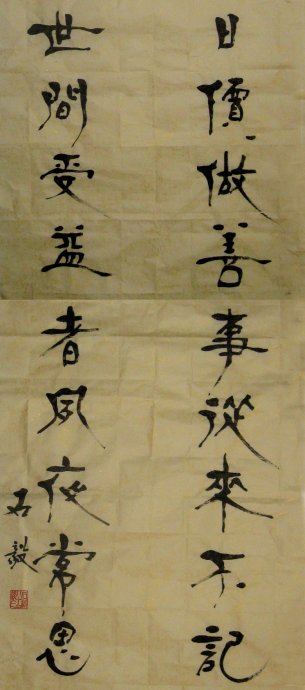 日價做善事從來不記
世間受益者夙夜常思
石毅